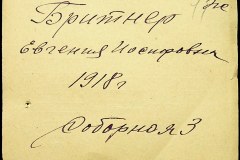 Бритнер
Евгения Иосифовна
1918 г
Соборная 3